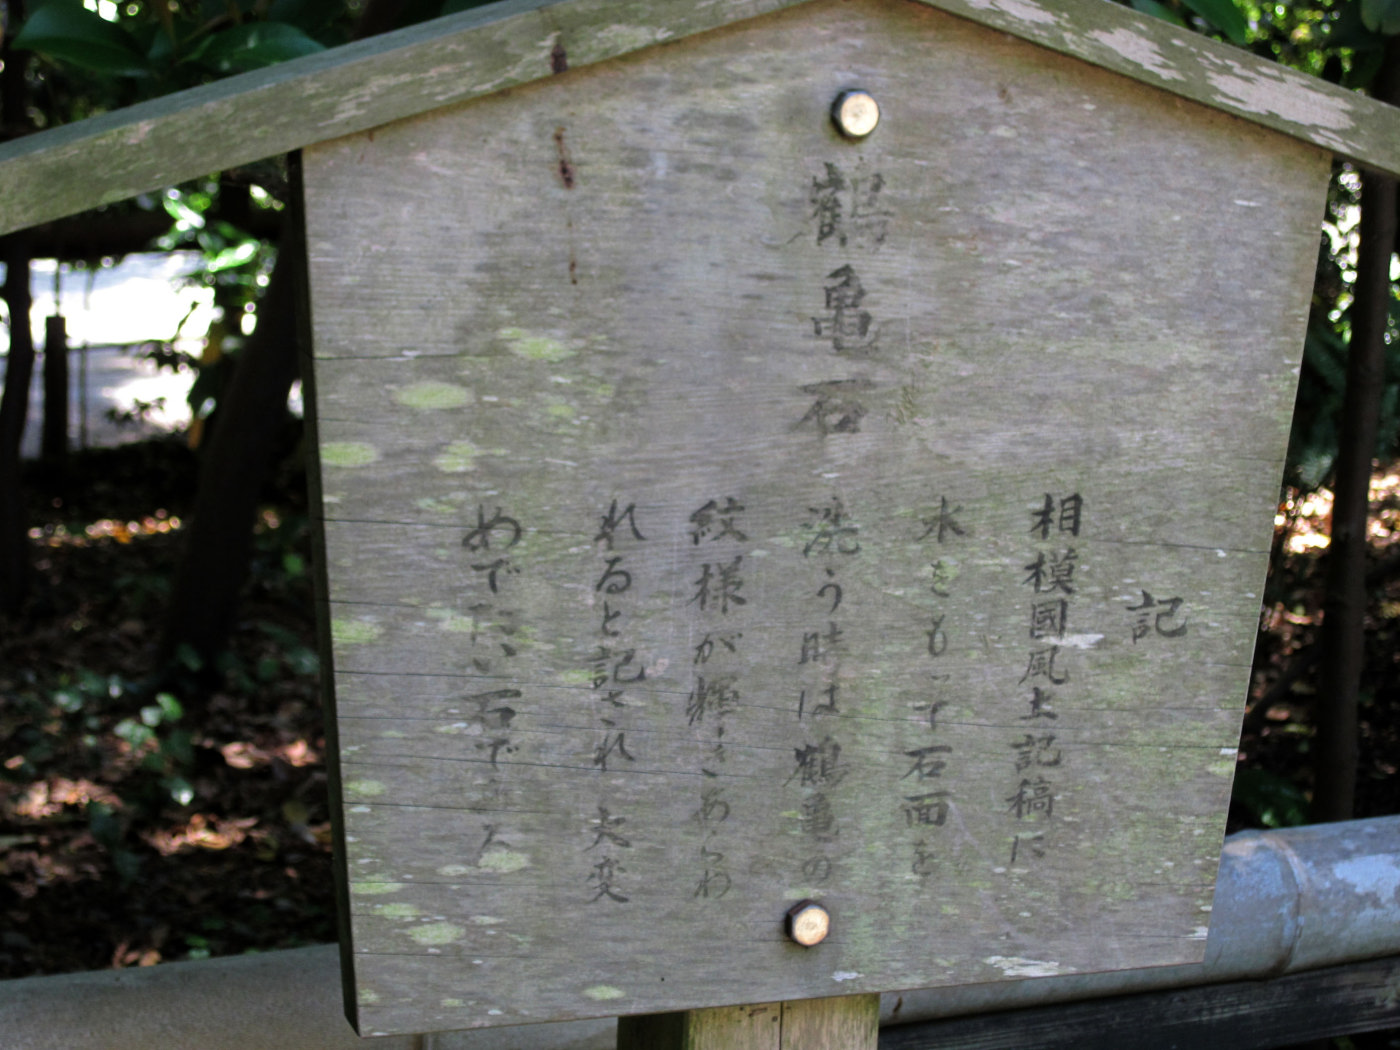 鶴亀石
記
相模國風土記稿に
水をもって石面を
洗う時は鶴亀の
紋様が輝きあらわ
れると記され 大変
めでたい石です